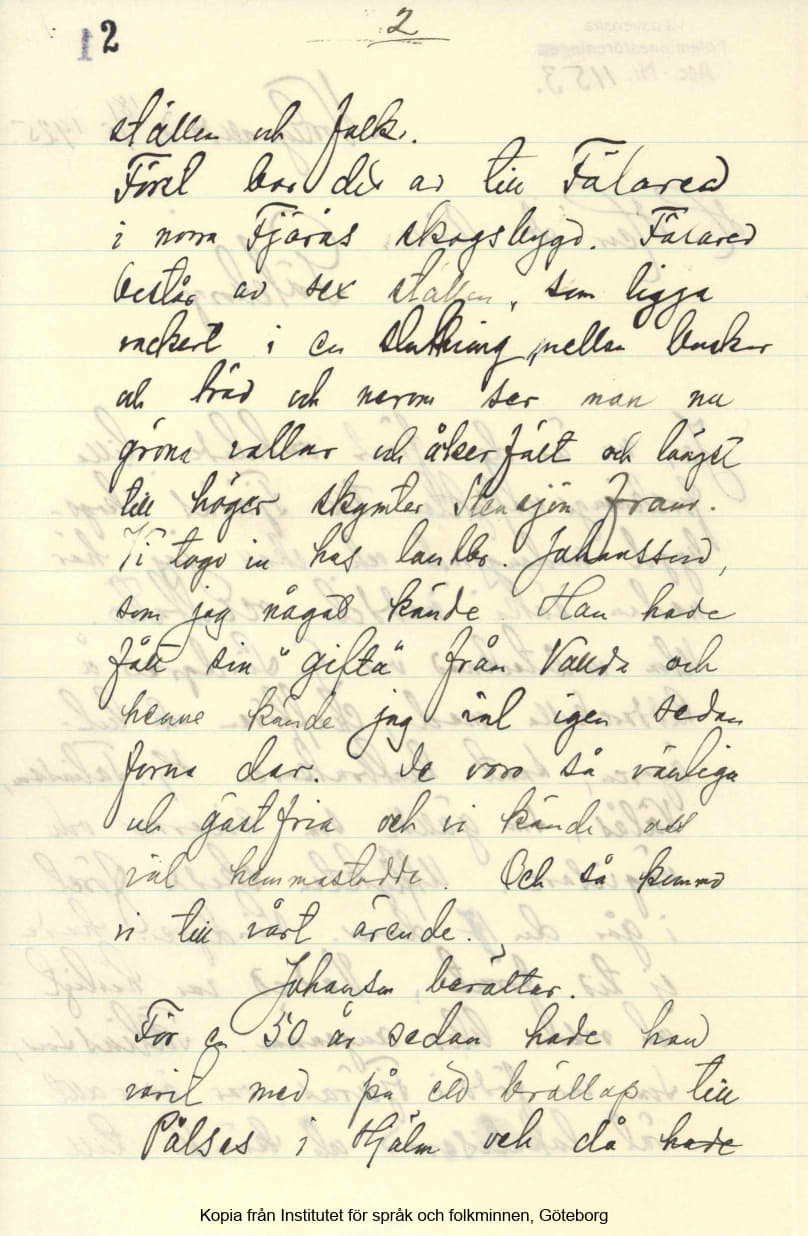 2 2
ställen och folk.
Först bar det av till Fälared
i norra Fjärås skogsbygd. Fälared
består av sex ställen, som ligga
vackert i en sluttning mellan buskar
och träd och nerom ser man nu
gröna vallar och åkerfält och längst
till höger skymtar Stensjön fram.
Vi togo in hos lantbr. Johansson,
som jag något kände. Han hade
fått sin "gifta" från Vallda och
henne kände jag väl igen sedan
forna dar. De voro så vänliga
och gästfria och vi kände oss
väl hemmastadda. Och så kommo
vi till vårt ärende.
Johanson berättar.
För en 50 år sedan hade han
varit med på ett bröllop till
Pålsas i Hjälm och då hade
Kopia från Institutet för språk och folkminnen, Göteborg